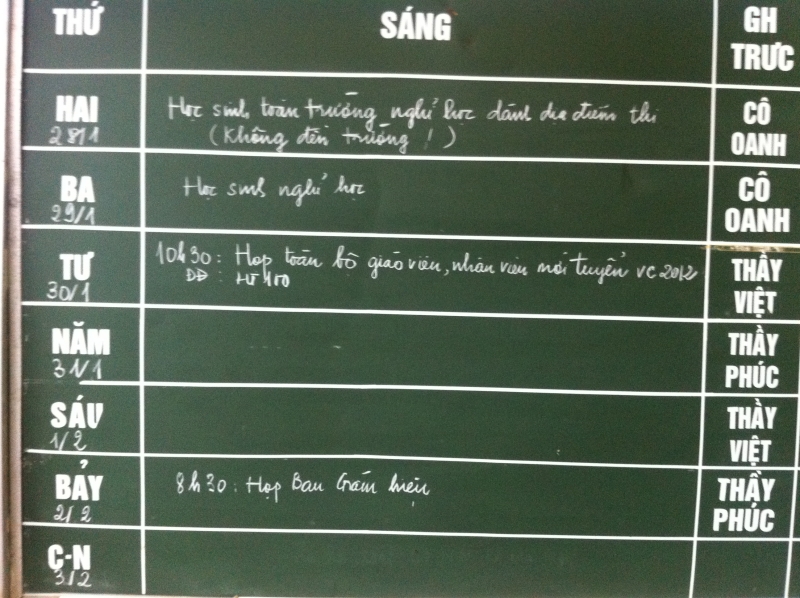 THỨ SÁNG GH TRỰC
HAI 28/1 Học sinh toàn trường nghỉ học dành địa điểm thi CÔ OANH
(Không đến trường !)
BA 29/1 Học sinh nghỉ học CÔ OANH
TƯ 30/1 10h30: Họp toàn bộ giáo viên, nhân viên mới tuyển VC 2012 THẦY VIỆT
DĐ : HT 100
NĂM 31/1 THẦY PHÚC
SÁU 1/2 THẦY VIỆT
BẢY 2/2 8h30: Họp Ban Giám hiệu THẦY PHÚC
C-N 3/2